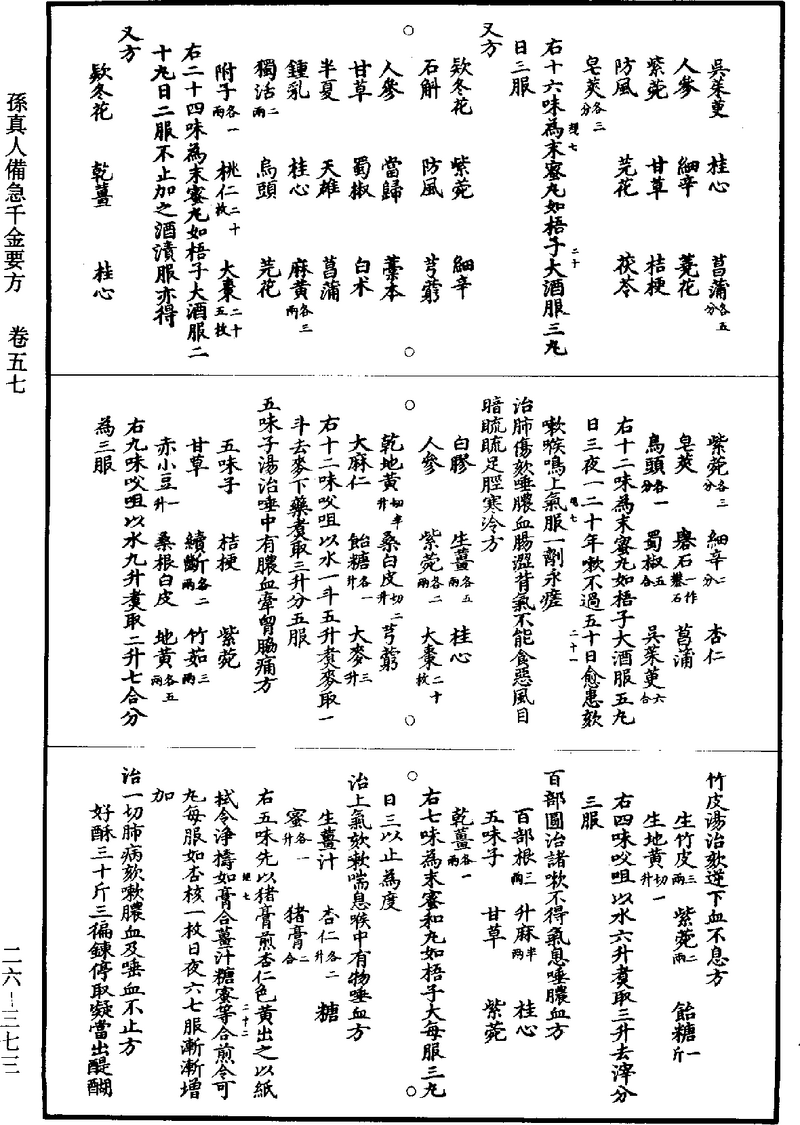 孫真人備急千金要方　卷五七
二六-三七三
吳茱萸　桂心　菖蒲各五分
人參　細辛　菱花
紫菀　甘草　桔梗
防風　芫花　茯苓
皂莢各三分
右十六味為末蜜丸如梧子大酒服三丸
日三服
又方
欵冬花　紫菀　細辛
石斛　防風　芎藭
人參　當歸　藁本
甘草　蜀椒　白术
半夏　天雄　菖蒲
鍾乳　桂心　麻黃各三兩
獨活二兩　烏頭　芫花
附子各一兩　桃仁二十枚　大棗二十五枚
右二十四味為末蜜丸如梧子大酒服二
十丸日二服不止加之酒漬服亦得
又方
欵冬花　乾薑　桂心
紫菀各三分　細辛二分　杏仁
皂莢　礜石一作礬石　菖蒲
烏頭各一分　蜀椒五合　吳茱萸六合
右十二味為末蜜丸如梧子大酒服五丸
日三夜一二十年嗽不過五十日愈患欬
嗽喉鳴上氣服一劑永瘥
治肺傷欬唾膿血腸澀背氣不能食惡風目
暗䀮䀮足脛寒冷方
白膠　生薑各五兩　桂心
人參　紫菀各二兩　大棗二十枚
乾地黃切半升　桑白皮切二升　芎藭
大麻仁　飴糖各一升　大麥三升
右十二味㕮咀以水一斗五升煮麥取一
斗去麥下藥煮取三升分五服
五味子湯治唾中有膿血牽胷脇痛方
五味子　桔梗　紫菀
甘草　續斷各二兩　竹茹三兩
赤小豆一升　桑根白皮　地黃各五兩
右九味㕮咀以水九升煮取二升七合分
為三服
竹皮湯治欬逆下血不息方
生竹皮三兩　紫菀二兩　飴糖一斤
生地黃切一升
右四味㕮咀以水六升煮取三升去滓分
三服
百部圓治諸嗽不得氣息唾膿血方
百部根三兩　升麻半兩　桂心
五味子　甘草　紫菀
乾薑各一兩
右七味為末蜜和丸如梧子大每服三丸
日三以止為度
治上氣欬嗽喘息喉中有物唾血方
生薑汁　杏仁各二升　糖
蜜各一升　猪膏二合
右五味先以猪膏煎杏仁色黃出之以紙
拭令淨擣如膏合薑汁糖蜜等合煎令可
丸每服如杏核一枚日夜六七服漸漸增
加
治一切肺病欬嗽膿血及唾血不止方
好酥三十斤三徧鍊停取凝當出醍醐